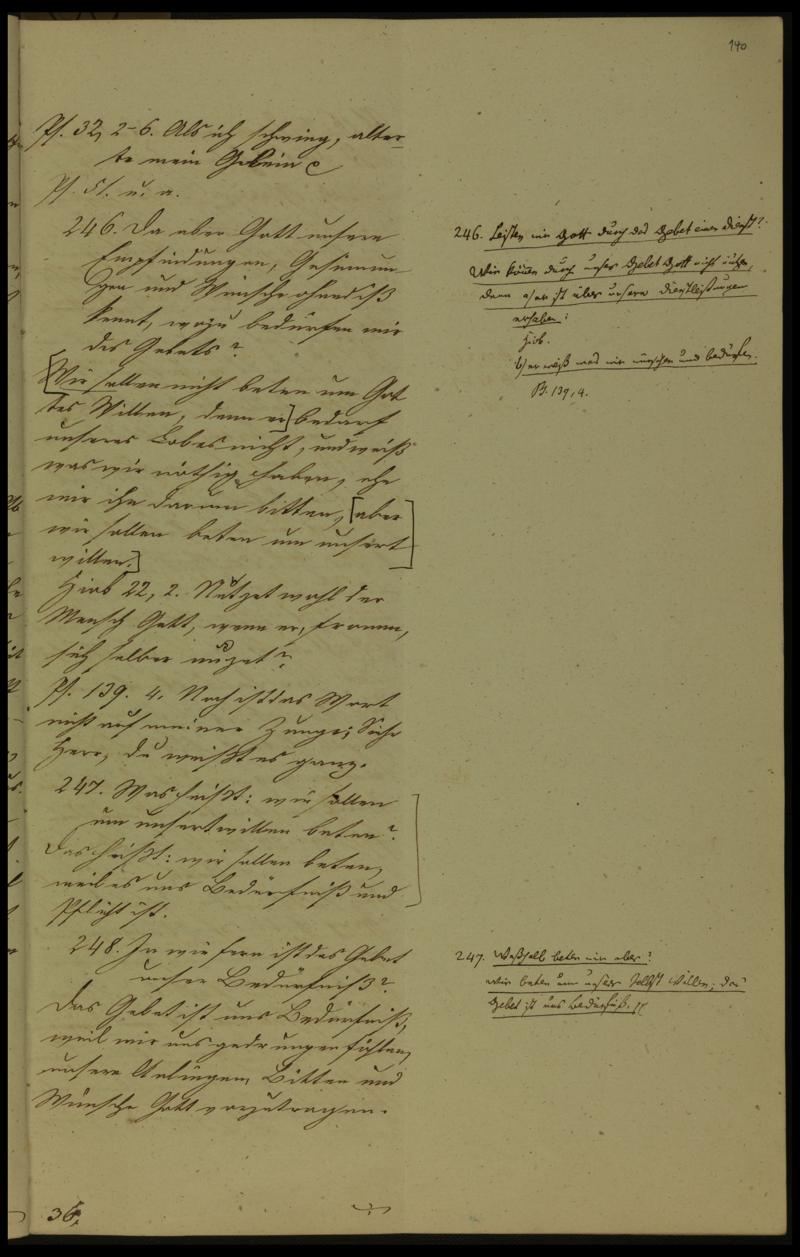 140
Ps. 32, 2-6. Als ich schwieg, alter-
te mein Gebein
Ps. 51. u. a.
246. Da aber Gott unsere
Empfindungen, Gesinnun
gen und Wünsche ohnediß
kennt, wozu bedürfen wir
des Gebets?
[Wir sollen nicht beten um Got
tes Willen, denn er] bedarf
unseres Lobes nicht, und weiß
was wir nöthig haben, ehe
wir ihn darum bitten, [aber
wir sollen beten um unsert
willen.]
Hiob 22, 2. Nützet wohl der
Mensch Gott, wenn er, fromm,
sich selber nüzet?
Ps. 139. 4. Noch ist das Wort
nicht auf meiner Zunge; Siehe
Herr, du weißt es ganz.
247. Was heißt: wir sollen
um unsertwillen beten?
Das heißt: wir sollen beten,
weil es uns Bedürfniß und
Pflicht ist.
248. In wie fern ist das Gebet
unser Bedürfniß?
Das Gebet ist uns Bedürfniß,
weil wir uns gedrungen fühlen,
unsere Anliegen, Bitten und
Wünsche Gott vorzutragen.
36.
246. Leisten wir Gott durch das Gebet einen Dienst?
Wir können durch unser Gebet Gott nicht nützen,
denn a) er ist über unsere Dienstleistungen
erhaben:
Hiob.
b) er weiß was wir wünschen und bedürfen.
Ps. 139, 4.
247. Weßhalb beten wir aber?
Wir beten um unser selbst Willen; das
Gebet ist uns Bedürfniß.